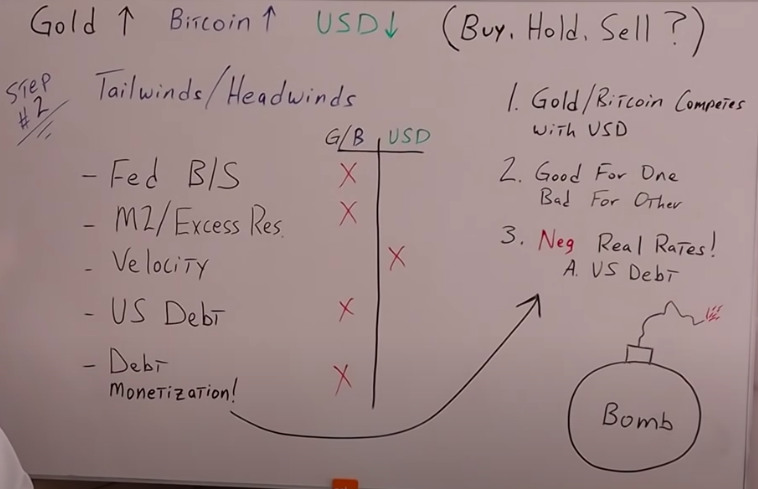 Gold ↑ Bitcoin ↑ USD ↓ (Buy. Hold. Sell?)
Step #2
Tailwinds/Headwinds
G/B USD
- Fed B/S X
- M2/Excess Res. X
- Velocity X
- US Debt X
- Debt X
Monetization!
1. Gold/Bitcoin Competes
with USD
2. Good For One
Bad For Other
3. Neg Real Rates!
A. US Debt
Bomb